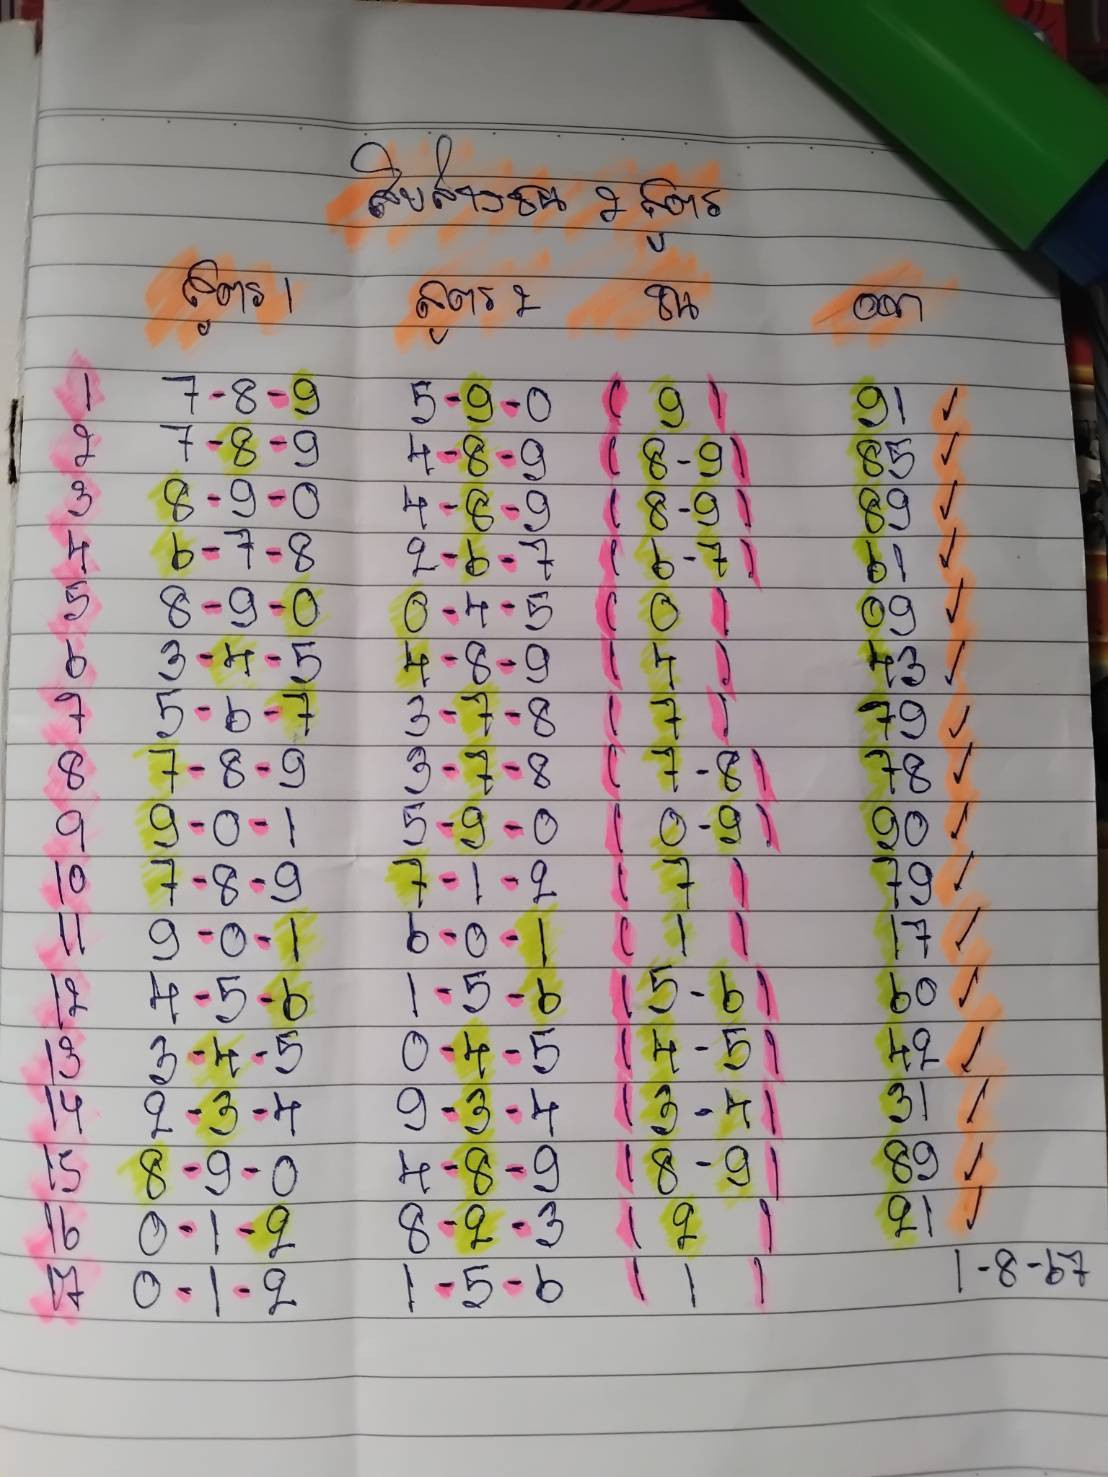 สิบล่างชน 2 สูตร
สูตร 1 สูตร 2 ชน ออก
1 7-8-9 5-9-0 ( 9 ) 91 ✓
2 7-8-9 4-8-9 ( 8-9 ) 85 ✓
3 8-9-0 4-8-9 ( 8-9 ) 89 ✓
4 6-7-8 2-6-7 ( 6-7 ) 61 ✓
5 8-9-0 0-4-5 ( 0 ) 09 ✓
6 3-4-5 4-8-9 ( 4 ) 43 ✓
7 5-6-7 3-7-8 ( 7 ) 79 ✓
8 7-8-9 3-7-8 ( 7-8 ) 78 ✓
9 9-0-1 5-9-0 ( 0-9 ) 90 ✓
10 7-8-9 7-1-2 ( 7 ) 79 ✓
11 9-0-1 6-0-1 ( 1 ) 17 ✓
12 4-5-6 1-5-6 ( 5-6 ) 60 ✓
13 3-4-5 0-4-5 ( 4-5 ) 42 ✓
14 2-3-4 9-3-4 ( 3-4 ) 31 ✓
15 8-9-0 4-8-9 ( 8-9 ) 89 ✓
16 0-1-2 8-2-3 ( 2 ) 21 ✓
17 0-1-2 1-5-6 ( 1 ) 1-8-67